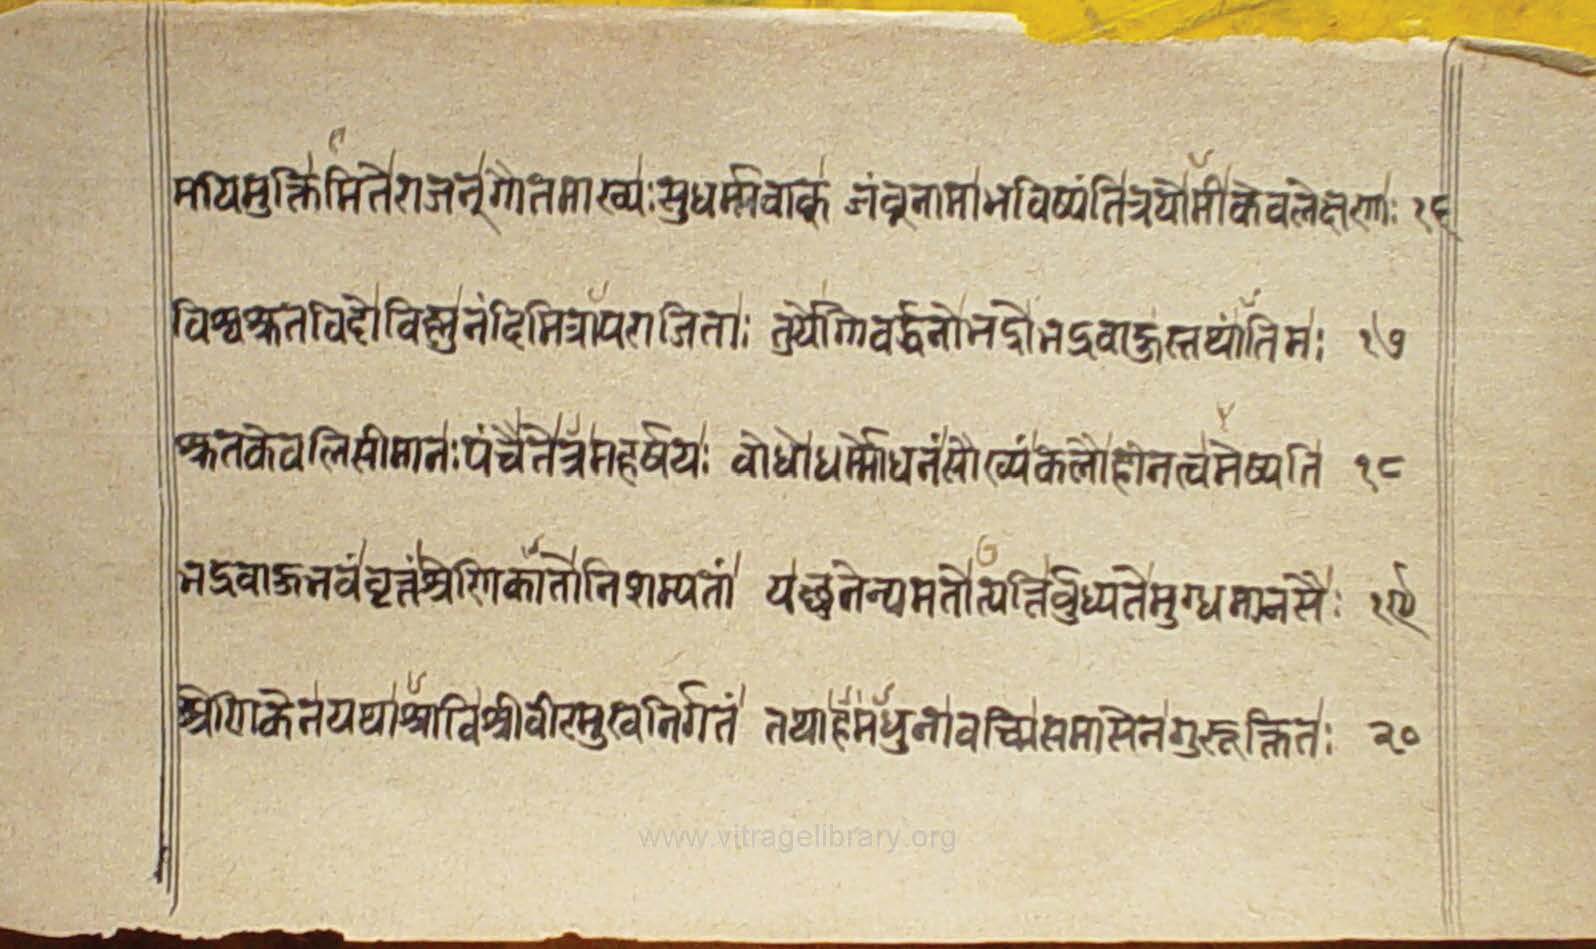 मयिमुक्तिमितेराजन्गौतमाख्यःसुधर्म्मवाक् जंबूनामाभविष्यंतित्रयोमीकेवलेक्षणाः १६
विश्वश्रुतविदोविष्णुनंदिमित्रापराजिताः तुर्योगोवर्द्धनोभद्रोभद्रबाहुस्तथांतिमः १७
श्रुतकेवलिसीमानःपंचैतेत्रमहर्षयः वोधोधर्म्मोधनंसौख्यंकलौहीनत्वमेष्यति १८
भद्रवाहुभवंवृत्तंश्रेणिकातोनिशम्यतां यच्छ्रुतेन्यमतोत्पत्तिर्वुध्यतेमुग्धमानसैः १९
श्रेणिकेनयथाश्राविश्रीवीरमुखनिर्गतं तथाहमधुनावच्मिसमासेनगुरूक्तितः २०
www.vitragelibrary.org